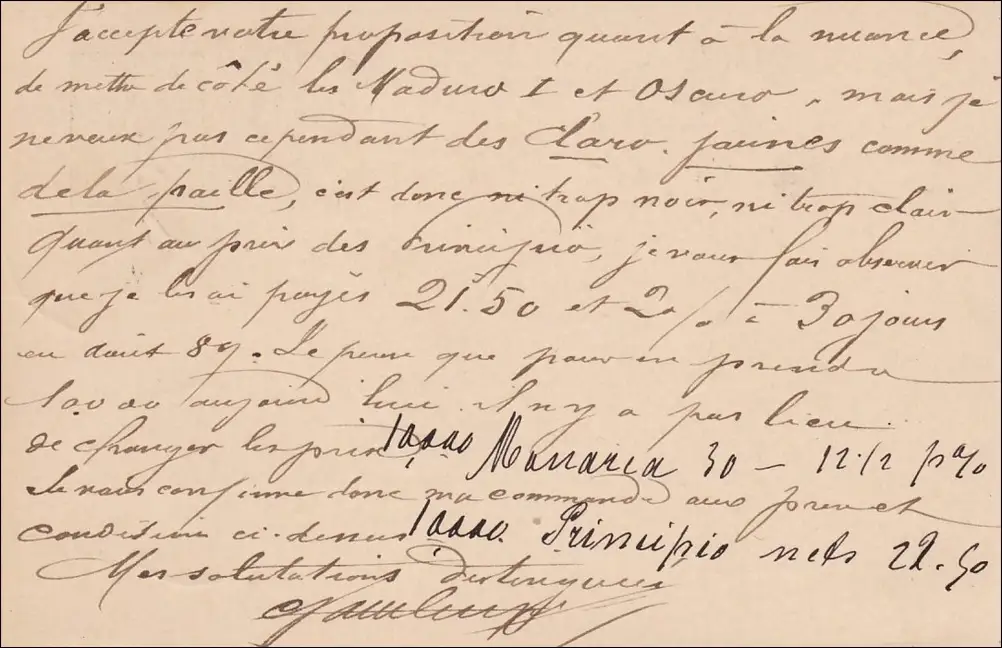 J'accepte votre proposition quant à la nuance,
de mettre de côté les Maduro I et Oscuro, mais je
ne veux pas cependant des Claro. jaunes comme
de la paille, c'est donc ni trop noir, ni trop clair
Quant au prix des Principio, je vous fais observer
que je les ai payés 21.50 et 2% à 30 jours
en août 89. Je pense que pour en prendre
10.000 aujourd'hui il n'y a pas lieu
de changer les prix 10,000 Monarca 30 – 12 1/2 p%
Je vous confirme donc ma commande aux prix et
conditions ci-dessus 10000. Principio nets 22.50
Mes salutations distinguées